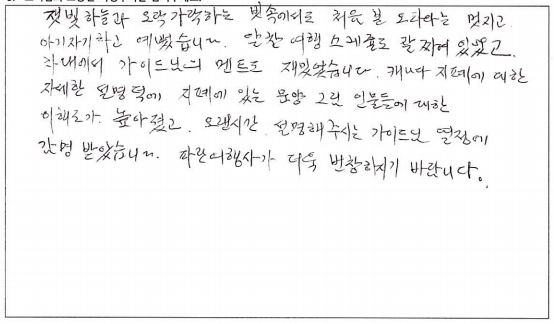 잿빛하늘과 오락가락하는 빗속에서도 처음 본 오타와는 멋지고
아기자기하고 예뻤습니다. 알찬 여행 스케쥴로 잘 짜여 있었고
차내에서 가이드님의 멘트도 재밌었습니다. 캐나다 지폐에 대한
자세한 설명덕에 지폐에 있는 문양 그림 인물들에 대한
이해도가 높아졌고, 오랜시간 설명해주시는 가이드님 열정에
감명 받았습니다. 파란여행사가 더욱 번창하시기 바랍니다.